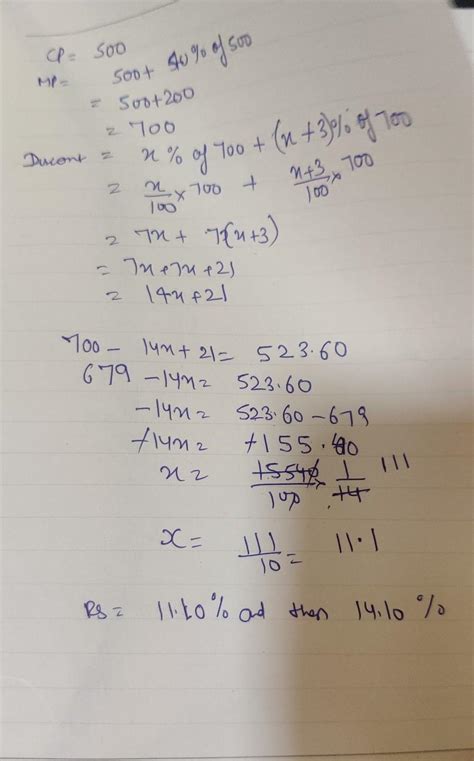 CP = 500
MP = 500 + 40% of 500
= 500+200
= 700
Discont = x% of 700 + (x+3)% of 700
= x/100 × 700 + x+3/100 × 700
= 7x + 7(x+3)
= 7x + 7x + 21
= 14x + 21
700 - 14x + 21 = 523.60
679 - 14x = 523.60
-14x = 523.60 - 679
+14x = +155.40
x = 15540/100 × 1/14 111
x = 111/10 = 11.1
Rs = 11.10% and then 14.10%